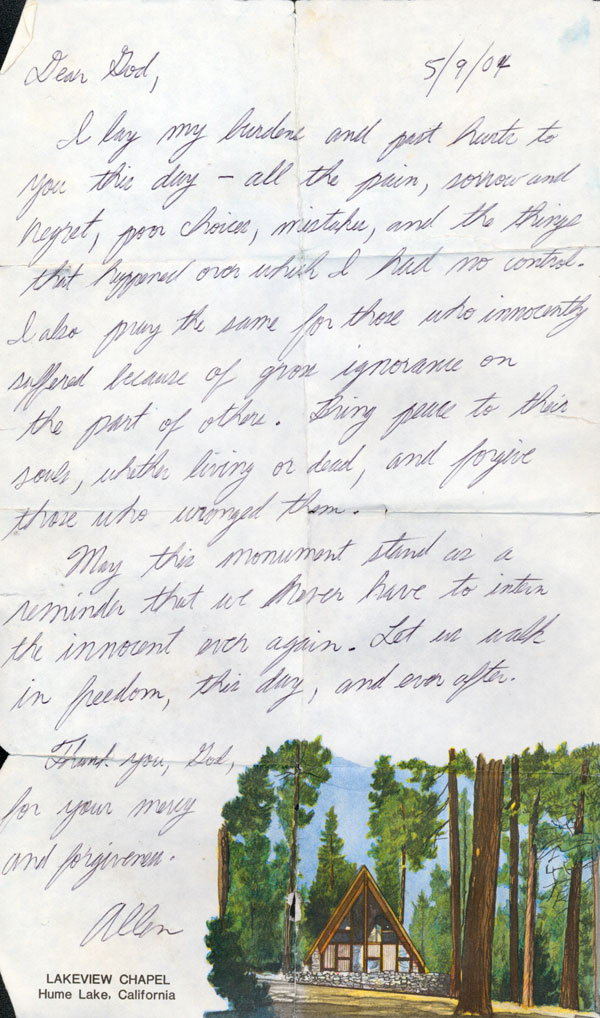 Dear God,
5/9/04
I lay my burdens and past hurts to
you this day – all the pain, sorrow and
regret, poor choices, mistakes, and the things
that happened over which I had no control.
I also pray the same for those who innocently
suffered because of gross ignorance on
the part of others. Bring peace to their
souls, whether living or dead, and forgive
those who wronged them.
May this monument stand as a
reminder that we never have to intern
the innocent ever again. Let us walk
in freedom, this day, and ever after.
Thank you, God,
for your mercy
and forgiveness.
Allen
LAKEVIEW CHAPEL
Hume Lake, California